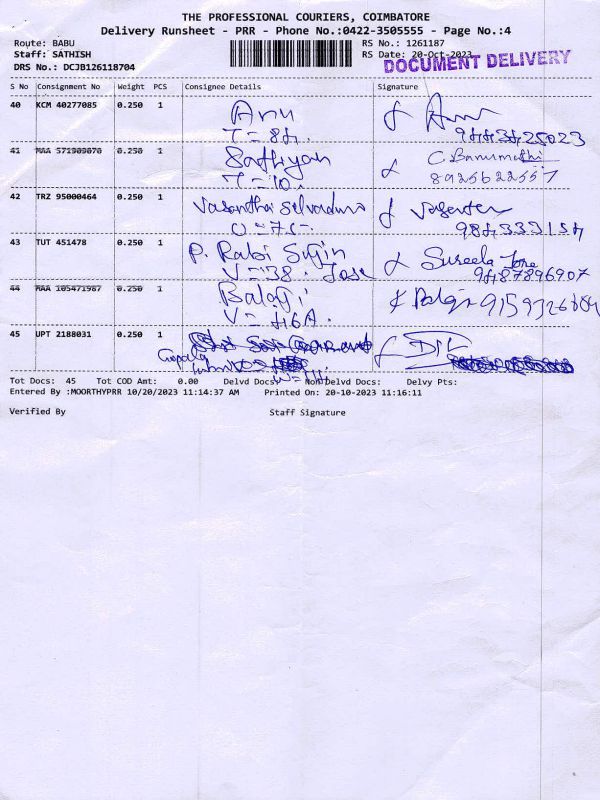 THE PROFESSIONAL COURIERS, COIMBATORE
Delivery Runsheet - PRR - Phone No.:0422-3505555 - Page No.:4
Route: BABU
RS No.: 1261187
Staff: SATHISH
RS Date: 20-Oct-2023
DRS No.: DCJB126118704
DOCUMENT DELIVERY
S No Consignment No Weight PCS Consignee Details Signature
40 KCM 40277085 0.250 1 Anu
T = 84.
41 MAA 571909070 0.250 1 Sathiyan C Banumathi
T = 10. 8925622557
42 TRZ 95000464 0.250 1
43 TUT 451478 0.250 1 P. Rabi Sujin Sureela Jose
V = 38. Jose 9487896907
44 MAA 105471987 0.250 1 Balaji Balaji
V = 46A.
45 UPT 2188031 0.250 1
Gopala
Tot Docs: 45 Tot COD Amt: 0.00 Delvd Docs: Non Delvd Docs: Delvy Pts:
Entered By :MOORTHYPRR 10/20/2023 11:14:37 AM Printed On: 20-10-2023 11:16:11
Verified By Staff Signature